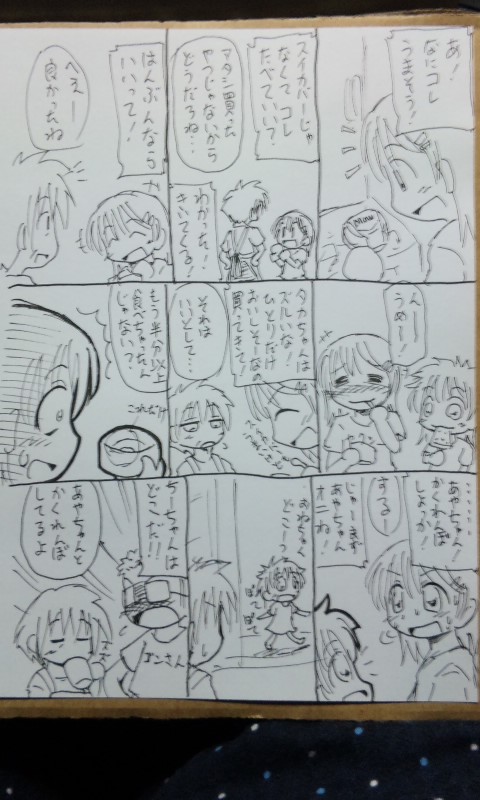 あ!
なにコレ
うまそう!
スイカバーじゃ
なくて コレ
たべていい?
アタシ買った
やつじゃないから
どうだろね…
わかった!
きいてくる!
はんぶんなら
いいって!
へえー
良かったね
んー
うめ〜!
タカちゃんは
ズルいな!
ひとりだけ
おいしそーなの
買ってきて!
それは
いいとして…
もう半分以上
食べちゃったん
じゃない?
これだけ
………
あやちゃん!
かくれんぼ
しよっか!
するー
じゃーまず
あやちゃん
オニね!
おねーちゃん
どこー?
ちーちゃんは
どこだ!!
エンさん
あやちゃんと
かくれんぼ
してるよ